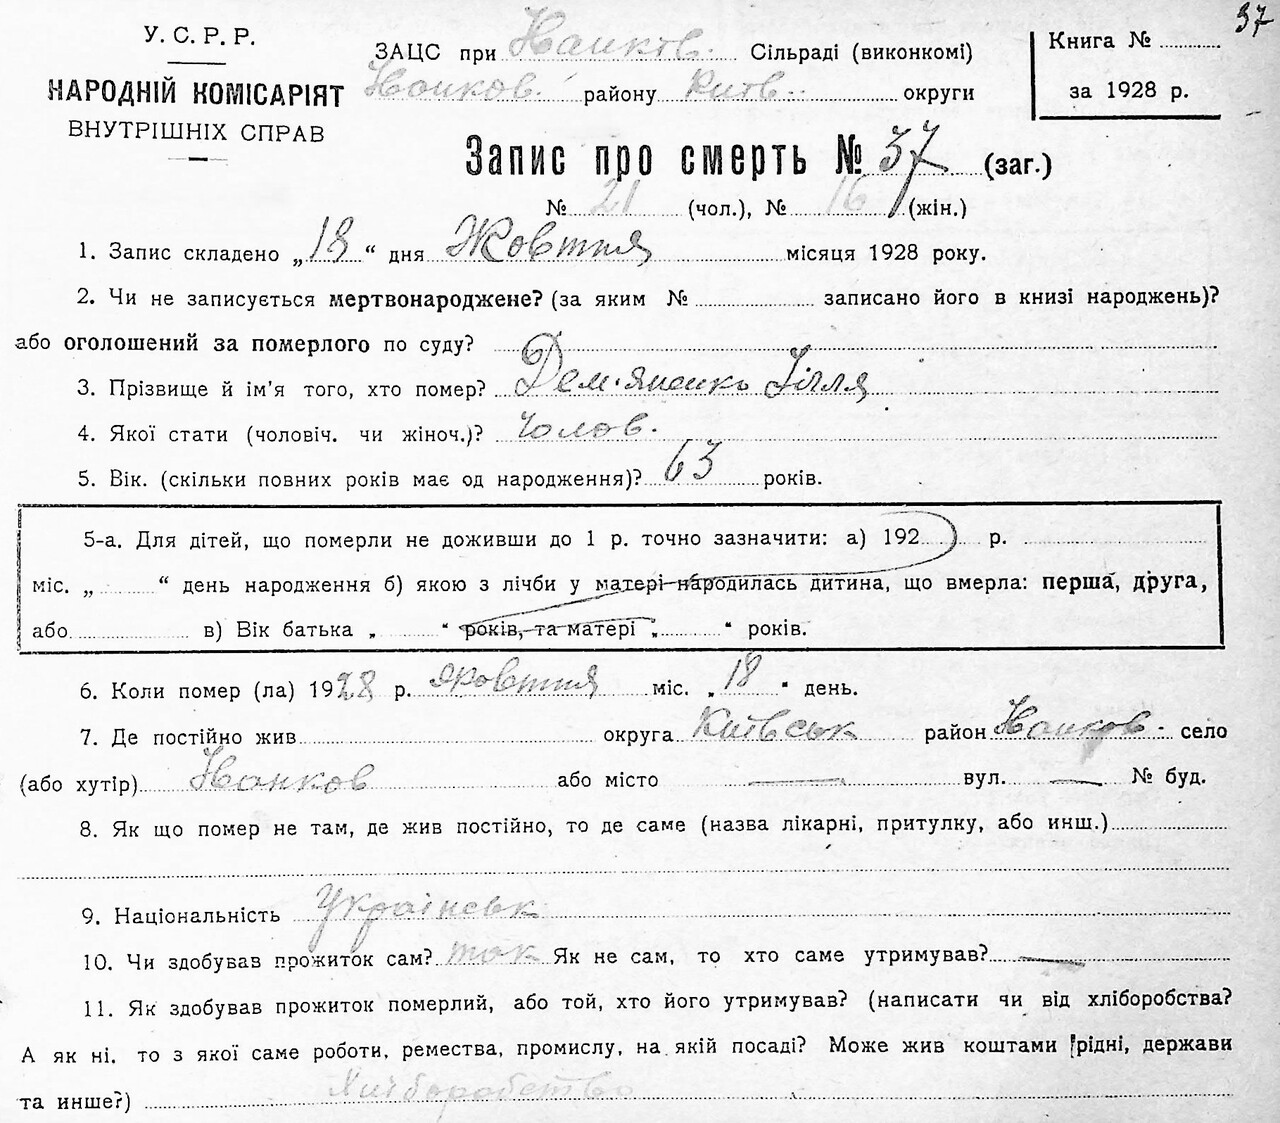 37
У. С. Р. Р.
НАРОДНІЙ КОМІСАРІЯТ
ВНУТРІШНІХ СПРАВ
ЗАЦС при Іванков. Сільраді (виконкомі)
Іванков. району Київ. округи
Книга №
за 1928 р.
Запис про смерть № 37 (заг.)
№ 21 (чол.), № 16 (жін.)
1. Запис складено „18“ дня Жовтня місяця 1928 року.
2. Чи не записується мертвонароджене? (за яким № записано його в книзі народжень)?
або оголошений за померлого по суду?
3. Прізвище й ім'я того, хто помер? Дем'яненко Ілля
4. Якої стати (чоловіч. чи жіноч.)? Чолов.
5. Вік. (скільки повних років має од народження)? 63 років.
5-а. Для дітей, що померли не доживши до 1 р. точно зазначити: а) 192 р.
міс. „ “ день народження б) якою з лічби у матері народилась дитина, що вмерла: перша, друга,
або в) Вік батька „ “ років, та матері „ “ років.
6. Коли помер (ла) 1928 р. жовтня міс. „18“ день.
7. Де постійно жив округа Київськ район Іванков. село
(або хутір) Іванков або місто — вул. — № буд.
8. Як що помер не там, де жив постійно, то де саме (назва лікарні, притулку, або инш.)
9. Національність Українськ
10. Чи здобував прожиток сам? так Як не сам, то хто саме утримував? —
11. Як здобував прожиток померлий, або той, хто його утримував? (написати чи від хліборобства?
А як ні. то з якої саме роботи, ремества, промислу, на якій посаді? Може жив коштами рідні, держави
та инше?) Хліборобство